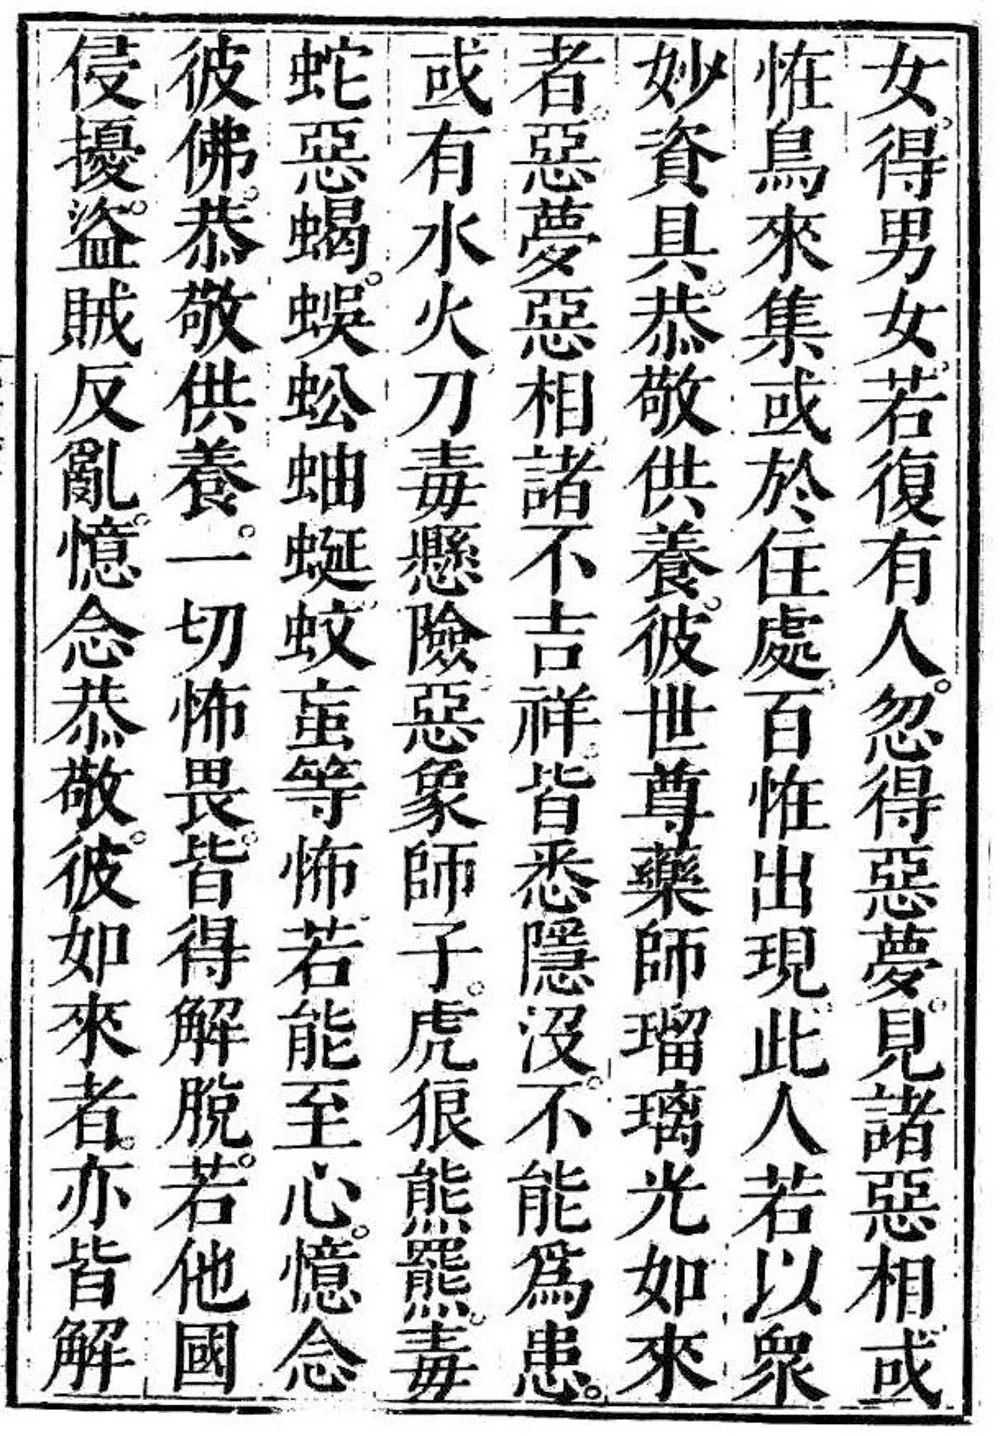 女。得男女。若復有人。忽得惡夢。見諸惡相或
恠鳥來集或於住處百恠出現此人若以衆
妙資具。恭敬供養。彼世尊藥師瑠璃光如來
者。惡夢惡相諸不吉祥。皆悉隱沒。不能爲患。
或有水火刀毒懸險惡象師子。虎很熊羆。毒
蛇惡蝎。蜈蚣蚰蜒蚊䖟等怖若能至心。憶念
彼佛。恭敬供養。一切怖畏。皆得解脫。若他國
侵擾。盜賊反亂。憶念恭敬。彼如來者。亦皆解